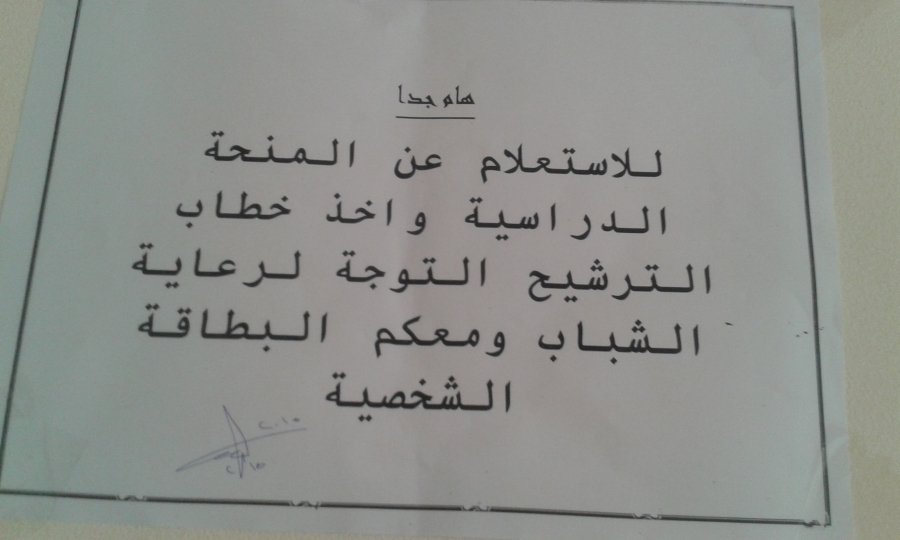 هام جدا
للاستعلام عن المنحة
الدراسية واخذ خطاب
الترشيح التوجة لرعاية
الشباب ومعكم البطاقة
الشخصية